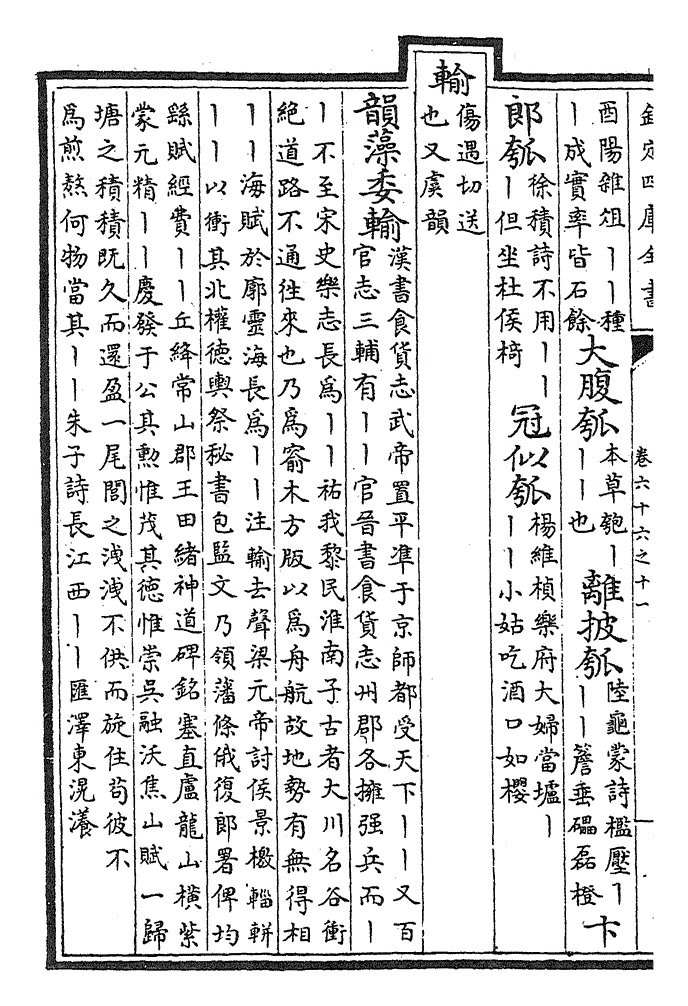 欽定四庫全書 卷六十六之十一
酉陽雜俎丨丨種
丨成實率皆石餘
大腹瓠
本草匏丨
丨丨也
離披瓠
陸龜蒙詩檻壓丨
丨丨簷垂礧磊橙
卞
郎瓠
徐積詩不用丨丨
丨但坐杜侯椅
冠似瓠
楊維楨樂府大婦當壚丨
丨丨小姑吃酒口如櫻
輸
傷遇切送
也又虞韻
韻藻委輸
漢書食貨志武帝置平準于京師都受天下丨丨又百
官志三輔有丨丨官晉書食貨志州郡各擁强兵而丨
丨不至宋史樂志長爲丨丨祐我黎民淮南子古者大川名谷衝
絶道路不通徃來也乃爲窬木方版以爲舟航故地勢有無得相
丨丨海賦於廓靈海長爲丨丨注輸去聲梁元帝討侯景檄輜軿
丨丨以衝其北權德輿祭秘書包監文乃領藩條俄復郎署俾均
繇賦經費丨丨丘絳常山郡王田緒神道碑銘塞直盧龍山横紫
蒙元精丨丨慶發于公其勲惟茂其德惟崇吳融沃焦山賦一歸
塘之積積既久而還盈一尾閭之洩洩不供而旋住苟彼不
爲煎熬何物當其丨丨朱子詩長江西丨丨匯澤東滉瀁